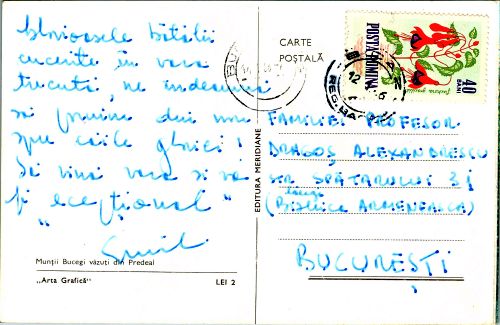 Glorioasele bătălii
cucerite în vara
trecută, ne îndeamnă
să privim din nou
spre căile gloriei!
Să vină vara și va
fi "excepțional"
Emil
Munții Bucegi văzuți din Predeal
„Arta Grafică”
LEI 2
EDITURA MERIDIANE
CARTE
POȘTALĂ
POSTA ROMINA
40
BANI
12
6
FAMILIEI PROFESOR
DRAGOȘ ALEXANDRESCU
STR SPĂTARULUI 31
(Biserica ARMENEASCĂ)
BUCUREȘTI